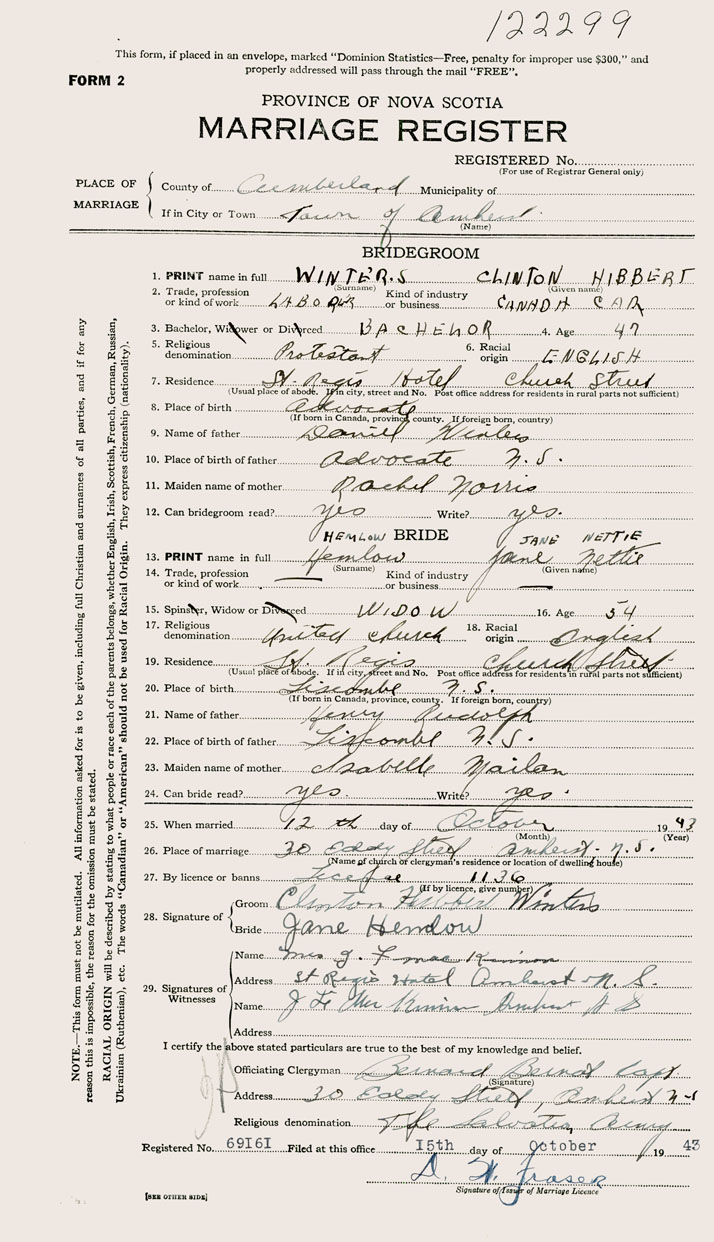 122299
This form, if placed in an envelope, marked "Dominion Statistics—Free, penalty for improper use $300," and
properly addressed will pass through the mail "FREE".
FORM 2
PROVINCE OF NOVA SCOTIA
MARRIAGE REGISTER
REGISTERED No.
(For use of Registrar General only)
PLACE OF MARRIAGE
County of Cumberland Municipality of
If in City or Town Town of Amherst
(Name)
BRIDEGROOM
1. PRINT name in full WINTERS CLINTON HIBBERT
(Surname) (Given name)
2. Trade, profession or kind of work LABORER Kind of industry or business CANADA CAR
3. Bachelor, Widower or Divorced BACHELOR 4. Age 47
5. Religious denomination Protestant 6. Racial origin ENGLISH
7. Residence St. Regis Hotel Church Street
(Usual place of abode. If in city, street and No. Post office address for residents in rural parts not sufficient)
8. Place of birth Advocate
(If born in Canada, province, county. If foreign born, country)
9. Name of father Daniel Winters
10. Place of birth of father Advocate N.S.
11. Maiden name of mother Rachel Norris
12. Can bridegroom read? yes Write? yes.
BRIDE
HEMLOW JANE NETTIE
13. PRINT name in full Hemlow Jane Nettie
(Surname) (Given name)
14. Trade, profession or kind of work — Kind of industry or business —
15. Spinster, Widow or Divorced WIDOW 16. Age 54
17. Religious denomination United Church 18. Racial origin English
19. Residence St. Regis Church Street
(Usual place of abode. If in city, street and No. Post office address for residents in rural parts not sufficient)
20. Place of birth Liscombe N.S.
(If born in Canada, province, county. If foreign born, country)
21. Name of father Henry Rudolph
22. Place of birth of father Liscombe N.S.
23. Maiden name of mother Isabelle Mailan
24. Can bride read? yes. Write? yes.
25. When married 12 th day of October 1943
(Month) (Year)
26. Place of marriage 30 Eddy Street Amherst - N.S.
(Name of church or clergyman's residence or location of dwelling house)
27. By licence or banns 1136
(If by licence, give number)
28. Signature of
Groom Clinton Hibbert Winters
Bride Jane Hemlow
29. Signatures of Witnesses
Name Mrs J. F. MacKinnon
Address St Regis Hotel Amherst N.S.
Name J Amherst N S
Address
I certify the above stated particulars are true to the best of my knowledge and belief.
Officiating Clergyman Bernard Capt
(Signature)
Address 30 Eddy Street, Amherst N-S
Religious denomination The Salvation Army
Registered No. 69161 Filed at this office 15th day of October 1943
D. W. Fraser
Signature of Issuer of Marriage Licence
[SEE OTHER SIDE]
NOTE.—This form must not be mutilated. All information asked for is to be given, including full Christian and surnames of all parties, and if for any
reason this is impossible, the reason for the omission must be stated.
RACIAL ORIGIN will be described by stating to what people or race each of the parents belongs, whether English, Irish, Scottish, French, German, Russian,
Ukrainian (Ruthenian), etc. The words "Canadian" or "American" should not be used for Racial Origin. They express citizenship (nationality).